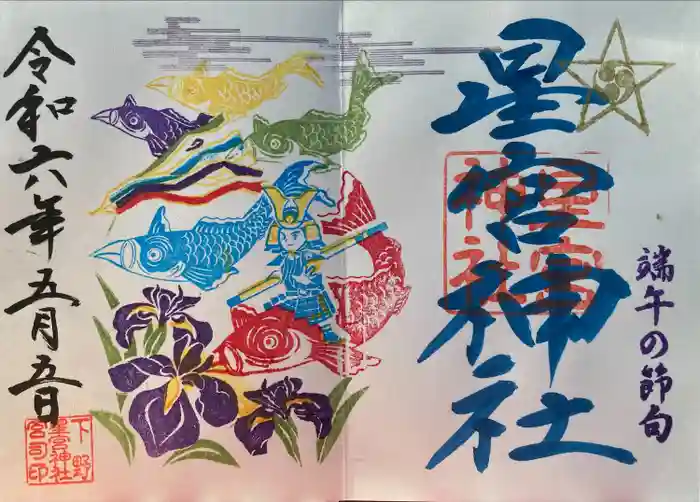 端午の節句
星宮神社
星宮神社
令和六年五月五日
下野
星宮神社
宮司印